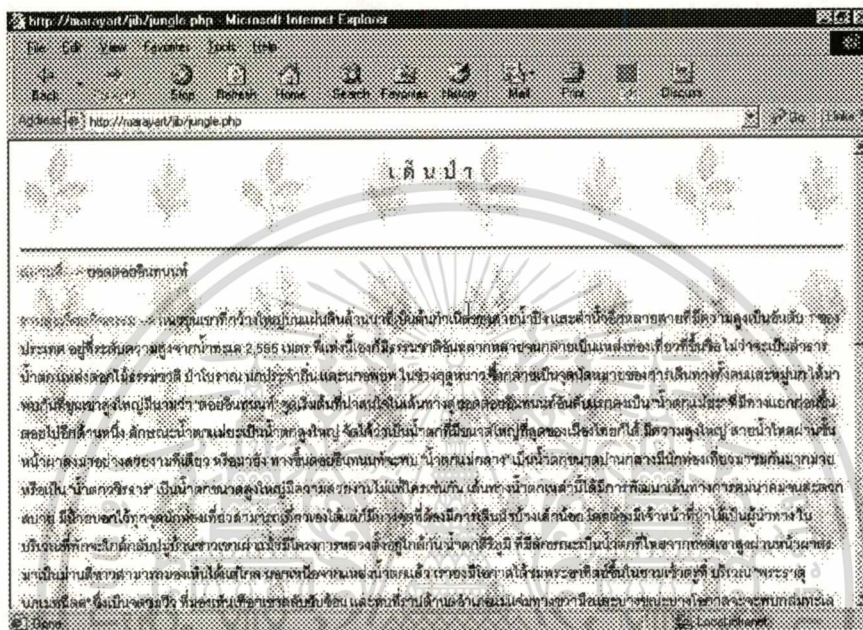 http://marayart/jib/jungle.php - Microsoft Internet Explorer
File Edit View Favorites Tools Help
Back Stop Refresh Home Search Favorites History Mail Print Edit Discuss
Address http://marayart/jib/jungle.php Go Links
เดินป่า
สถานที่ -> ยอดดอยอินทนนท์
แนวขุนเขาที่กว้างใหญ่บนแผ่นดินล้านนาที่เป็นต้นกำเนิดของสายน้ำปิง และลำน้ำอีกหลายสายที่มีความสูงเป็นอันดับ 1 ของ
ประเทศ อยู่ที่ระดับความสูงจากน้ำทะเล 2,565 เมตร ที่แห่งนี้เองก็มีธรรมชาติอันหลากหลายจนกลายเป็นแหล่งท่องเที่ยวที่ขึ้นชื่อ ไม่ว่าจะเป็นลำธาร
น้ำตก แหล่งดอกไม้ธรรมชาติ ป่าโบราณ นกประจำถิ่นและนกอพยพ ในช่วงฤดูหนาว ซึ่งกลายเป็นจุดนัดหมายของการเดินทางทั้งคนและหมู่นก ได้มา
พบกันที่ขุนเขาสูงใหญ่มีนามว่า "ดอยอินทนนท์" จุดเริ่มต้นที่น่าสนใจในเส้นทางสู่ยอดดอยอินทนนท์อันดับแรกคงเป็น "น้ำตกแม่ยะ" ที่มีทางแยกก่อนขึ้น
ดอยไปอีกด้านหนึ่ง ลักษณะน้ำตกแม่ยะเป็นน้ำตกสูงใหญ่ จัดได้ว่าเป็นน้ำตกที่มีขนาดใหญ่ที่สุดของเมืองไทยก็ได้ มีความสูงใหญ่ สายน้ำไหลผ่านชั้น
หน้าผาลงมาอย่างสวยงามทีเดียว หรือมายัง ทางขึ้นดอยอินทนนท์จะพบ "น้ำตกแม่กลาง" เป็นน้ำตกขนาดปานกลางมีนักท่องเที่ยวมาชมกันมากมาย
หรือเป็น "น้ำตกวชิรธาร" เป็นน้ำตกขนาดสูงใหญ่มีความสวยงามไม่แพ้ใครเช่นกัน เส้นทางน้ำตกเหล่านี้ได้มีการพัฒนาเส้นทางการคมนาคมจนสะดวก
สบาย มีป้ายบอกไว้ทุกจุดนักท่องเที่ยวสามารถเที่ยวเองได้แต่ก็มีบางจุดที่ต้องมีการเดินเท้าบ้างเล็กน้อย โดยต้องมีเจ้าหน้าที่ป่าไม้เป็นผู้นำทาง ใน
บริเวณที่พักจะใกล้กับหมู่บ้านชาวเขาเผ่าแม้วมีโครงการหลวงตั้งอยู่ใกล้กับ น้ำตกสิริภูมิ ที่มีลักษณะเป็นน้ำตกที่ไหลจากยอดเขาสูงผ่านหน้าผาลง
มาเป็นม่านสีขาวสามารถมองเห็นได้แต่ไกล นอกเหนือจากแหล่งน้ำตกแล้ว เรายังมีโอกาสได้ชมพระอาทิตย์ขึ้นในยามเช้าตรู่ที่ บริเวณ "พระธาตุ
Done Local intranet